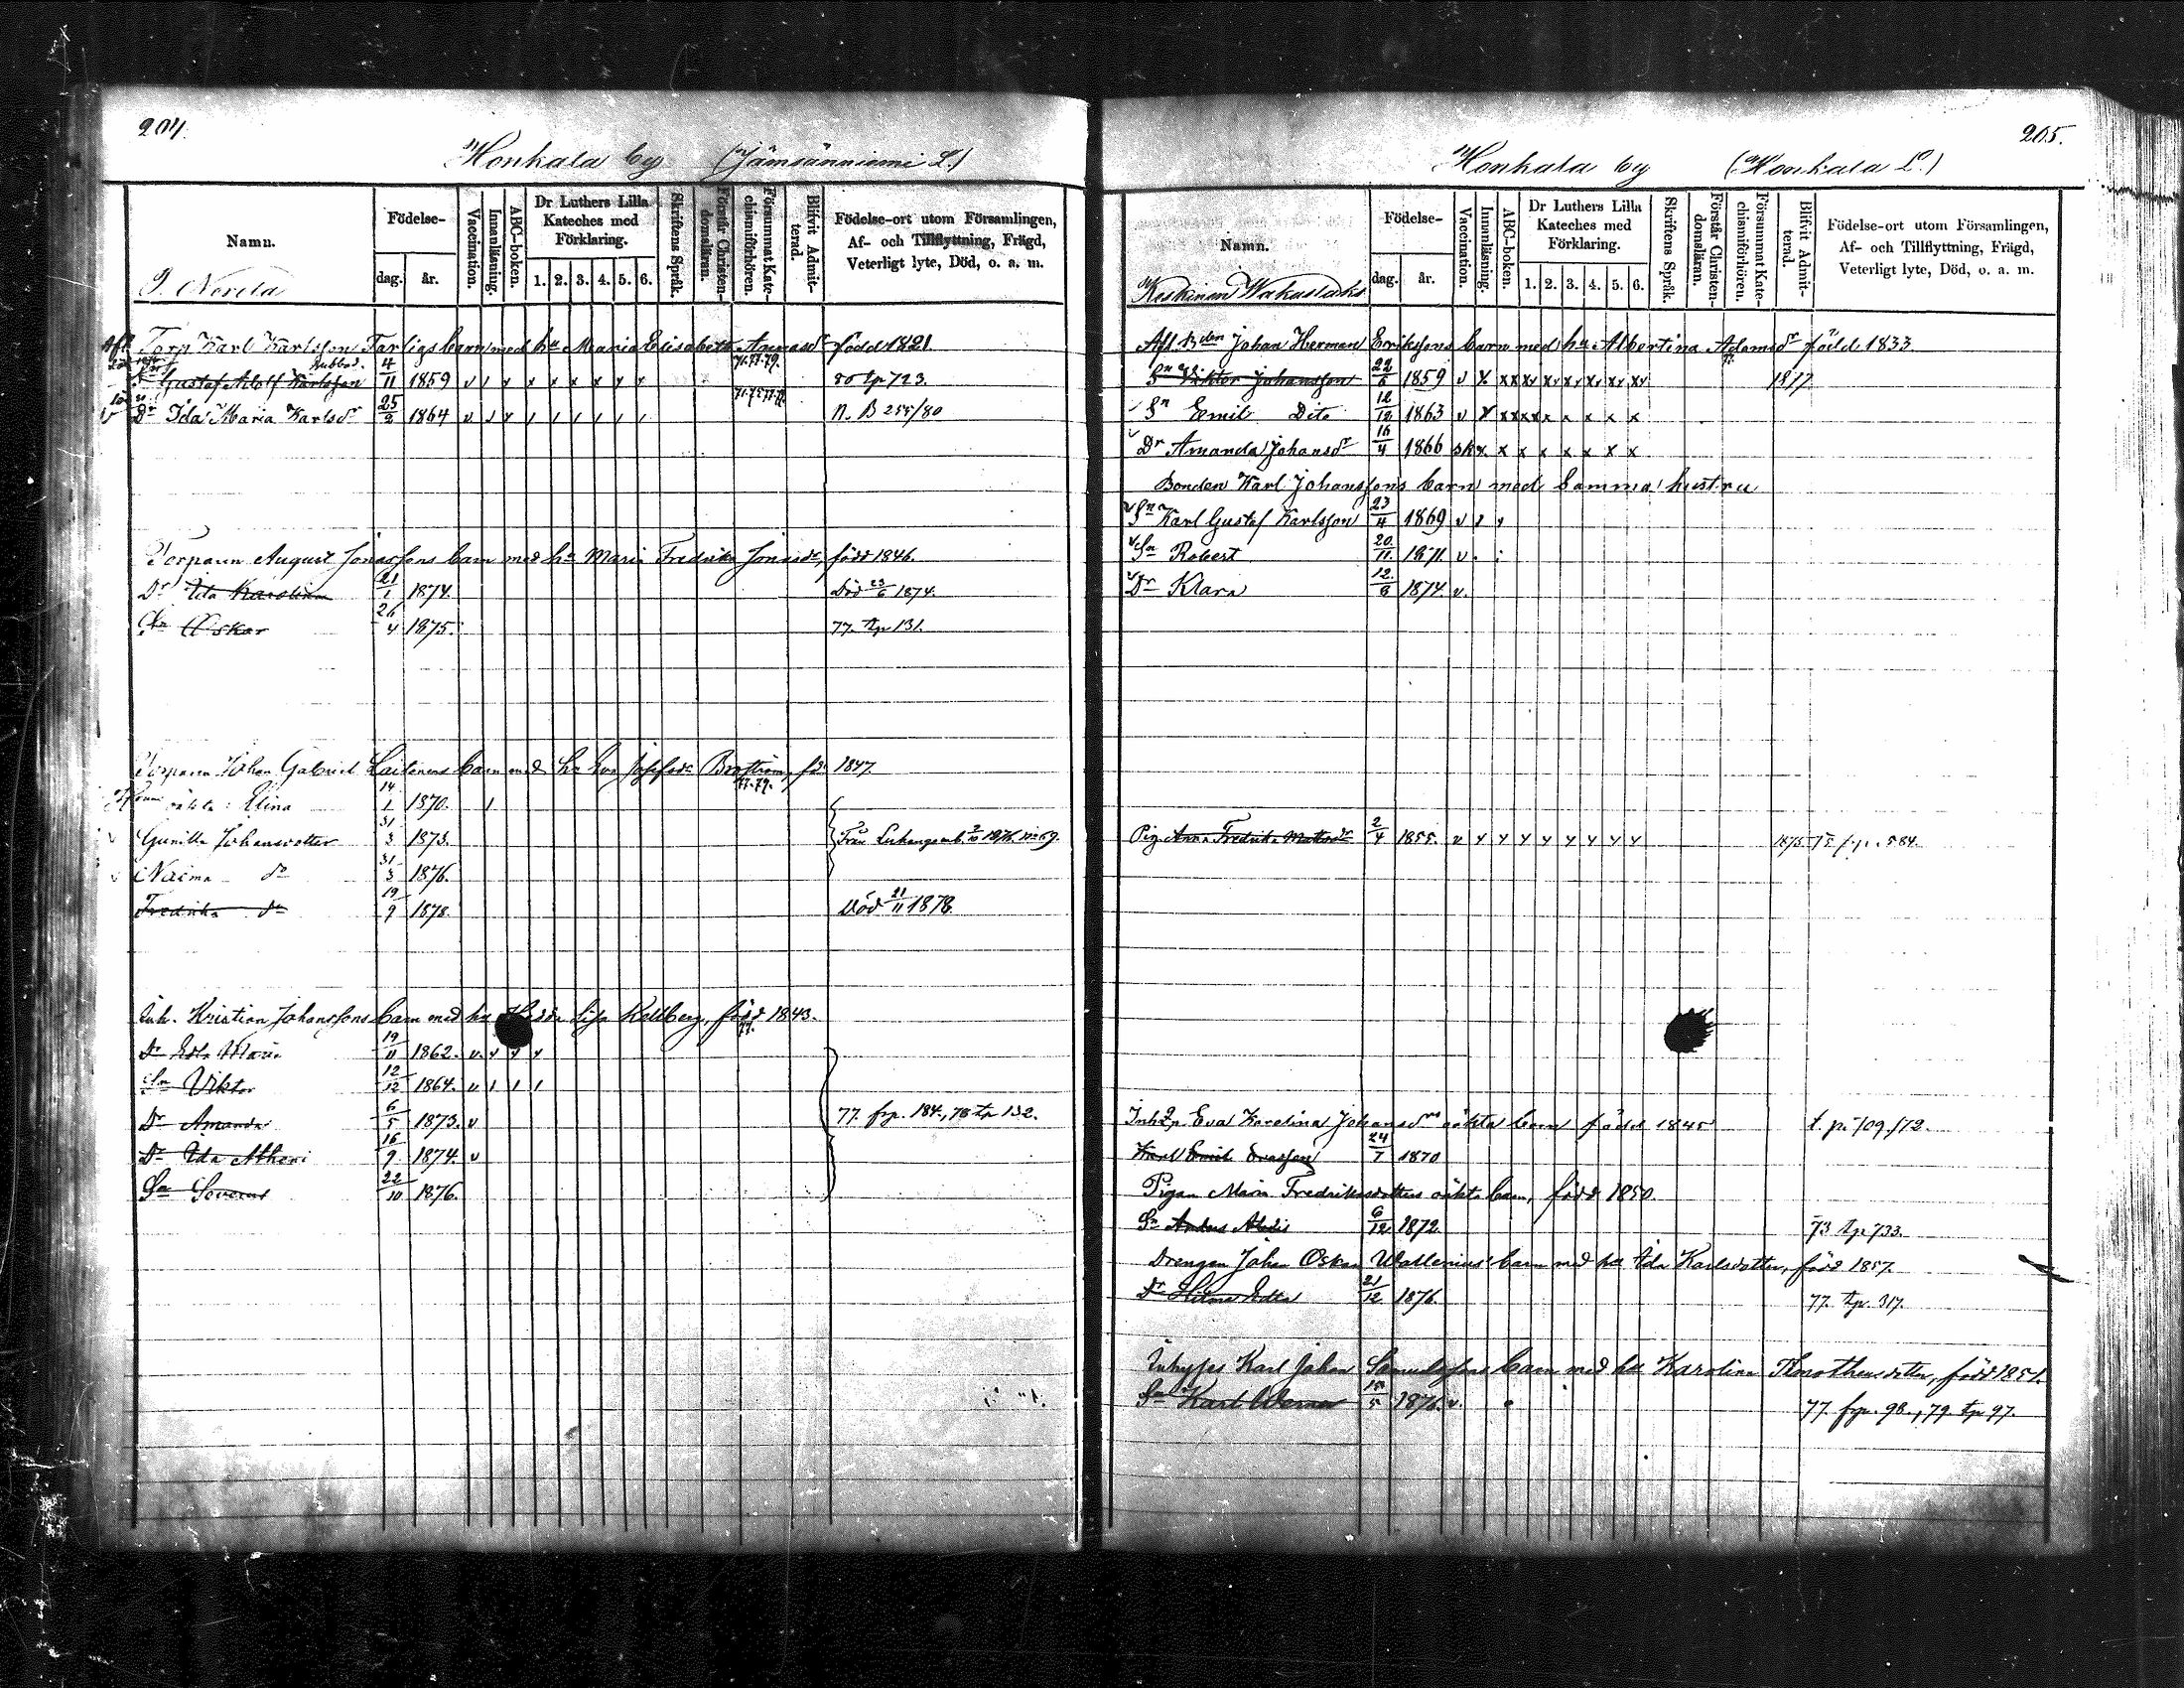 204.
Honkala by (Jämsänniemi L.)
Namn.
Födelse-
dag.
år.
Vaccination.
Innanläsning.
ABC-boken.
Dr Luthers Lilla Kateches med Förklaring.
1. 2. 3. 4. 5. 6.
Skriftens Språk.
Förstår Christen-domsläran.
Försummat Kate-chismiförhören.
Blifvit Admit-terad.
Födelse-ort utom Församlingen, Af- och Tillflyttning, Frägd, Veterligt lyte, Död, o. a. m.
Torp. Karl Karlsson Farligs barn med hu Maria Elisabeth född 1821
Gustaf Adolf Karlsson 4/11 1859 v 80 tp 723.
Dr Ida Maria Karlsdr 25/2 1864 v N. B 255/80
Torparen August Jonassons barn med hu Maria Fredrika Jonasdr, född 1846.
Dr Ida Karolina 21/1 1874. Död 23/6 1874.
Sn Oskar 26/4 1875. 77. tp 131.
Torparen Johan Gabriel Laitinens barn med hu Eva Josefsdr Broström, fdd 1847.
77.79.
oäkta: Elina 14/1 1870.
Gunilla Johansdotter 31/3 1873. Från 1876. no 69.
Naima do 31/3 1876.
Fredrika do 19/9 1878. Död 21/11 1878.
Inh. Kristian Johanssons barn med hu Hedda Lisa Kellberg, född 1843.
77.
Dr Eda Maria 19/11 1862. v.
Sn Viktor 12/12 1864. v
Dr Amanda 6/5 1873. v 77. frp. 184., 78 tp 132.
Dr Ida 16/9 1874. v
Sn Severus 22/10 1876.
205.
Honkala by (Honkala L.)
Namn.
Födelse-
dag.
år.
Vaccination.
Innanläsning.
ABC-boken.
Dr Luthers Lilla Kateches med Förklaring.
1. 2. 3. 4. 5. 6.
Skriftens Språk.
Förstår Christen-domsläran.
Försummat Kate-chismiförhören.
Blifvit Admit-terad.
Födelse-ort utom Församlingen, Af- och Tillflyttning, Frägd, Veterligt lyte, Död, o. a. m.
Afl. Bden Johan Herman Erikssons barn med hu Albertina Adamsdr född 1833
Sn Viktor Johansson 22/6 1859 v x xx xv xv xv xv xv xv 1877
Sn Emil Dito 12/12 1863 v
Dr Amanda Johansdr 16/4 1866 x x x x x x
Bonden Karl Johanssons barn med samma hustru
Sn Karl Gustaf Karlsson 23/4 1869 v
Sn Robert 20/11. 1871. v.
Dr Klara 12./6 1874 v.
Pig. Anna Fredrika Mattsdr 2/4 1855. v y y y y y y y y 1875. 75 fp. 584.
Inh. p. Eva Karolina Johansdrs oäkta barn född 1845 t. pi 109./72.
Karl Emil Evasson 24/7 1870
Pigan Maria Fredriksdotters oäkta barn, född 1850.
Sn Anders 6/12 1872 73 tp 733.
Drengen Johan Oskar Wallenius barn med hu Ida Karlsdotter, född 1857.
Dr Hilma Edla 21/12 1876. 77. tp. 317.
Inhyses Karl Johan Samuelssons barn med hu Karolina Timotheusdotter, född 1851.
Sn Karl Werner 15/5 1876. v. 77. frp. 98., 79. tp 97.